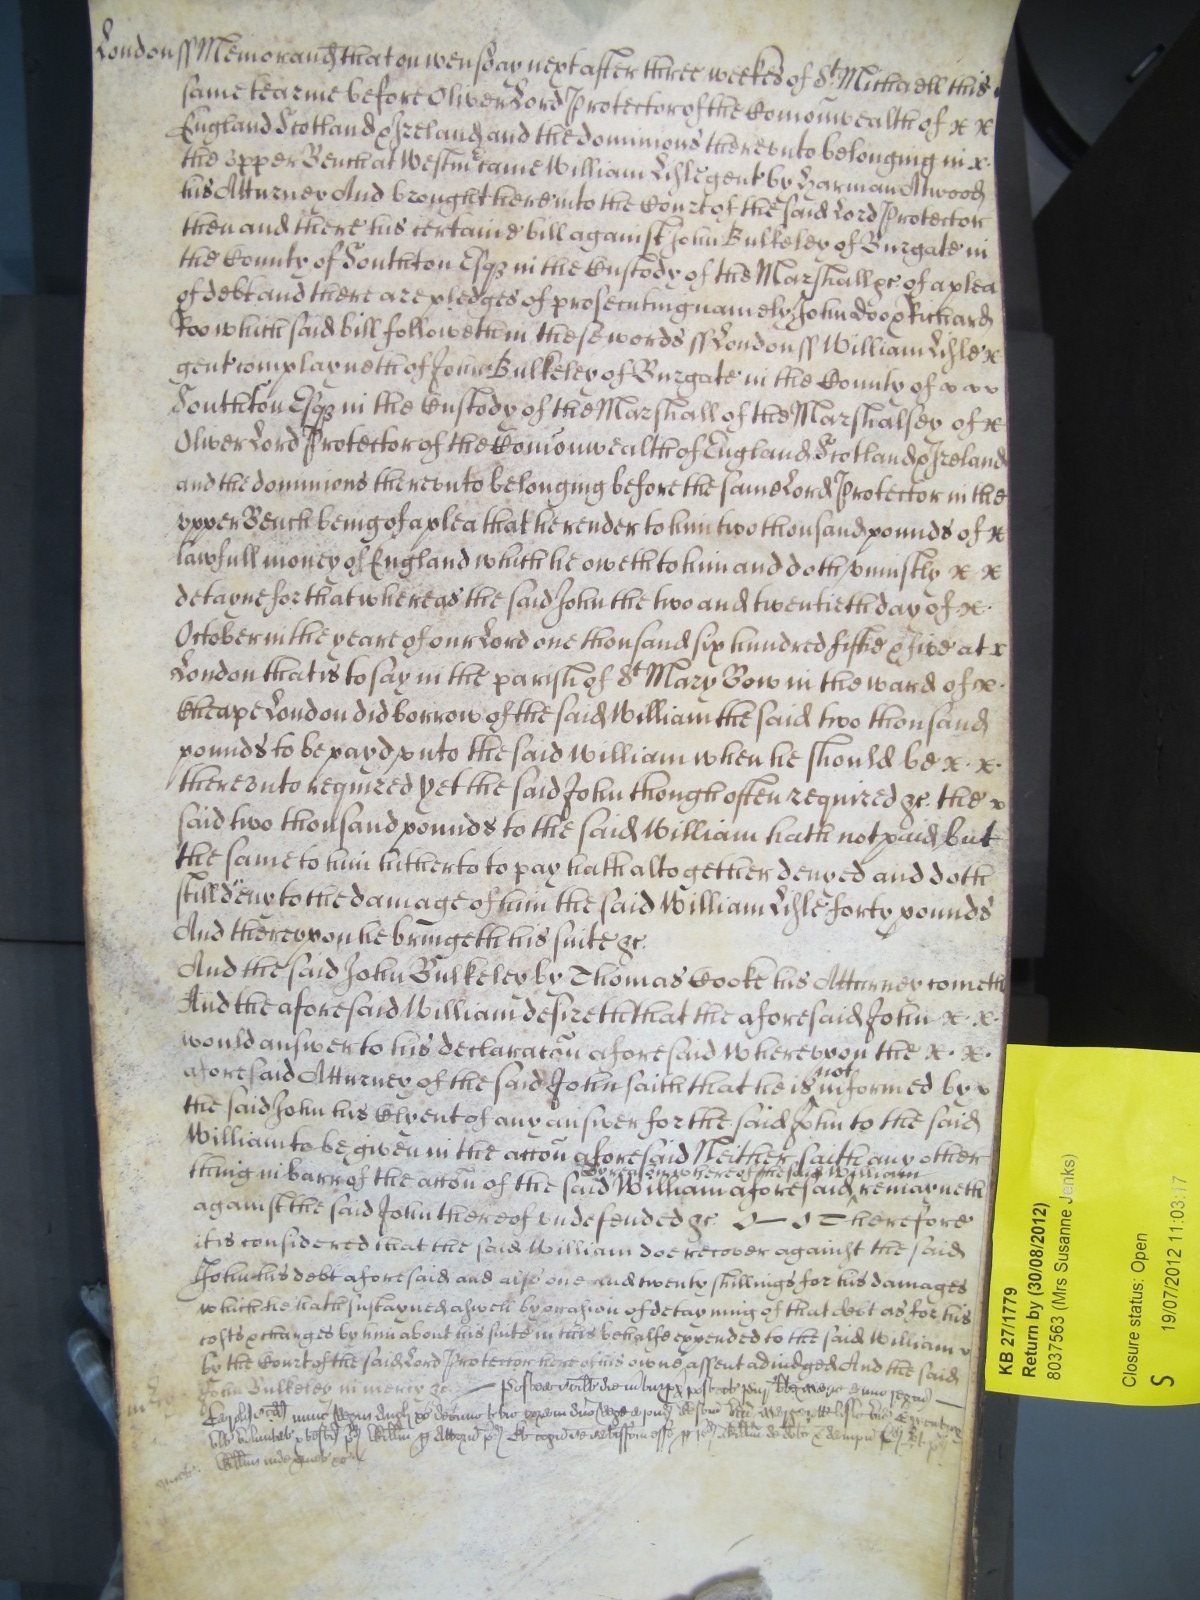 London ss Memorand that on wensday next after three weekes of St Michaell this
same tearme before Oliver Lord Protector of the Comonwealth of x x
England Scotland & Ireland and the dominions therevnto belonging in x
the vpper Bench at Westmr came William Lisle gent by Harman Atwood
his Atturney And brought here into the Court of the said Lord Protector
then and there his certaine bill against John Bulkeley of Burgate in
the County of Southton Esqr in the Custody of the Marshall &c of a plea
of debt and there are pledges of prosecuting namely John Doo & Richard
Roo which said bill followeth in these words ss London ss William Lisle x
gent complayneth of John Bulkeley of Burgate in the County of x x x
Southton Esqr in the Custody of the Marshall of the Marshalsey of x
Oliver Lord Protector of the Comonwealth of England Scotland & Ireland
and the dominions therevnto belonging before the same Lord Protector in the
vpper Bench being of a plea that he render to him two thousand pounds of x
lawfull money of England which he oweth to him and doth vniustly x x
detayne for that whereas the said John the two and twentieth day of x
October in the yeare of our Lord one thousand six hundred fiftie & five at x
London that is to say in the parish of St Mary Bow in the ward of x
Cheape London did borrow of the said William the said two thousand
pounds to be payd vnto the said William when he should be x x
therevnto required Yet the said John though often required &c the x
said two thousand pounds to the said William hath not paid but
the same to him hitherto to pay hath altogether denyed and doth
still deny to the damage of him the said William Lisle forty pounds
And therevpon he bringeth his suite &c
And the said John Bulkeley by Thomas Cooke his Atturney cometh
And the aforesaid William desireth that the aforesaid John x x
would answer to his declaracon aforesaid Wherevpon the x x
aforesaid Atturney of the said John saith that he is not informed by x
the said John his Clyent of any answer for the said John to the said
William to be given in the accon aforesaid Neither saith any other
thing in barr of the accon of the said William aforesaid by reason whereof the said William remayneth
against the said John thereof vndefended &c Therefore
it is considered that the said William doe recover against the said
John his debt aforesaid and also one and twenty shillings for his damages
which he hath sustayned aswell by occasion of detayning of that debt as for his
costs & charges by him about his suite in this behalfe expended to the said William x
by the Court of the said Lord Protector here of his owne assent adiudged And the said
John Bulkeley in mercy &c
KB 27/1779
Return by (30/08/2012)
8037563 (Mrs Susanne Jenks)
Closure status: Open
S 19/07/2012 11:03:17